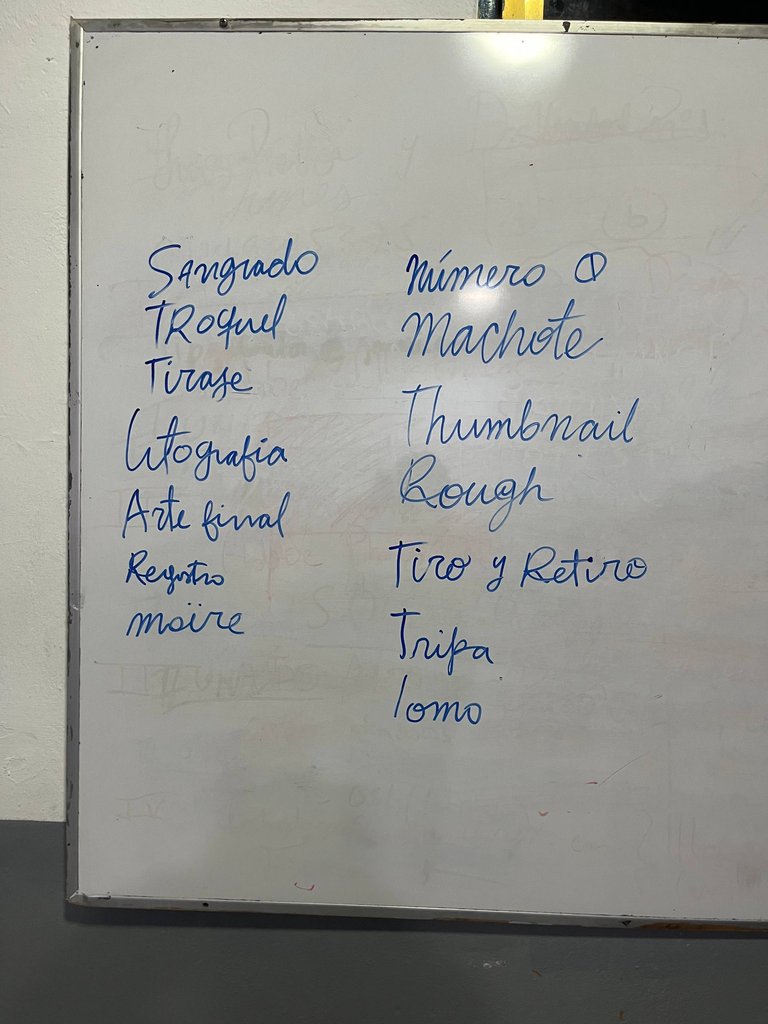 Sangrado
TRoquel
Tiraje
Litografia
Arte final
Registro
moïre
Número 0
Machote
Thumbnail
Rough
Tiro y Retiro
Tripa
lomo